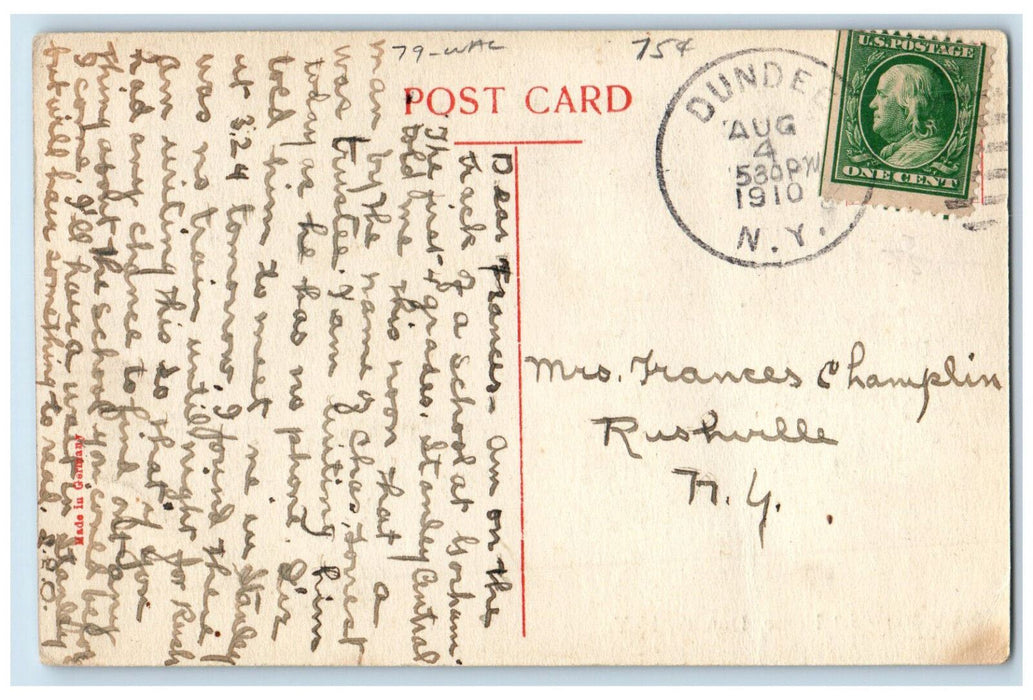 79-WAL
75¢
POST CARD
DUNDEE
AUG
4
530PM
1910
N.Y.
U.S. POSTAGE
ONE CENT
Dear Frances - Am on the
track of a school at Gorham.
The first 4 grades. Stanley Central
told me this noon that a
man by the name of Chas. Forest
was trustee. I am writing him
today as he has no phone. Sis
told him to meet me in Stanley
at 3:24 tomorrow. I found there
was no train until night for Rush
Am writing this so that if you
had any chance to find out any
thing about the school you could before
I come. I'll have a wait in Stanley
but will have something to read.
Mrs. Frances Champlin
Rushville
N.Y.
Made in Germany